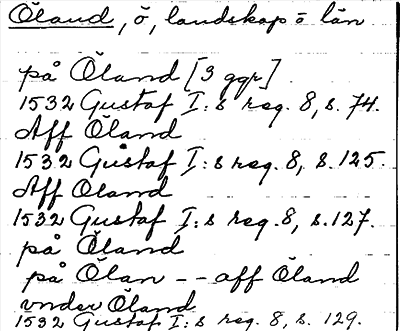 Öland, ö, landskap o län
på Öland [3 ggr]
1532 Gustaf I:s reg. 8, s. 74.
Aff Öland
1532 Gustaf I:s reg. 8, s. 125.
Aff Öland
1532 Gustaf I:s reg. 8, s. 127.
på Öland
på Ölan -- aff Öland
vnder Öland
1532 Gustaf I:s reg. 8, s. 129.